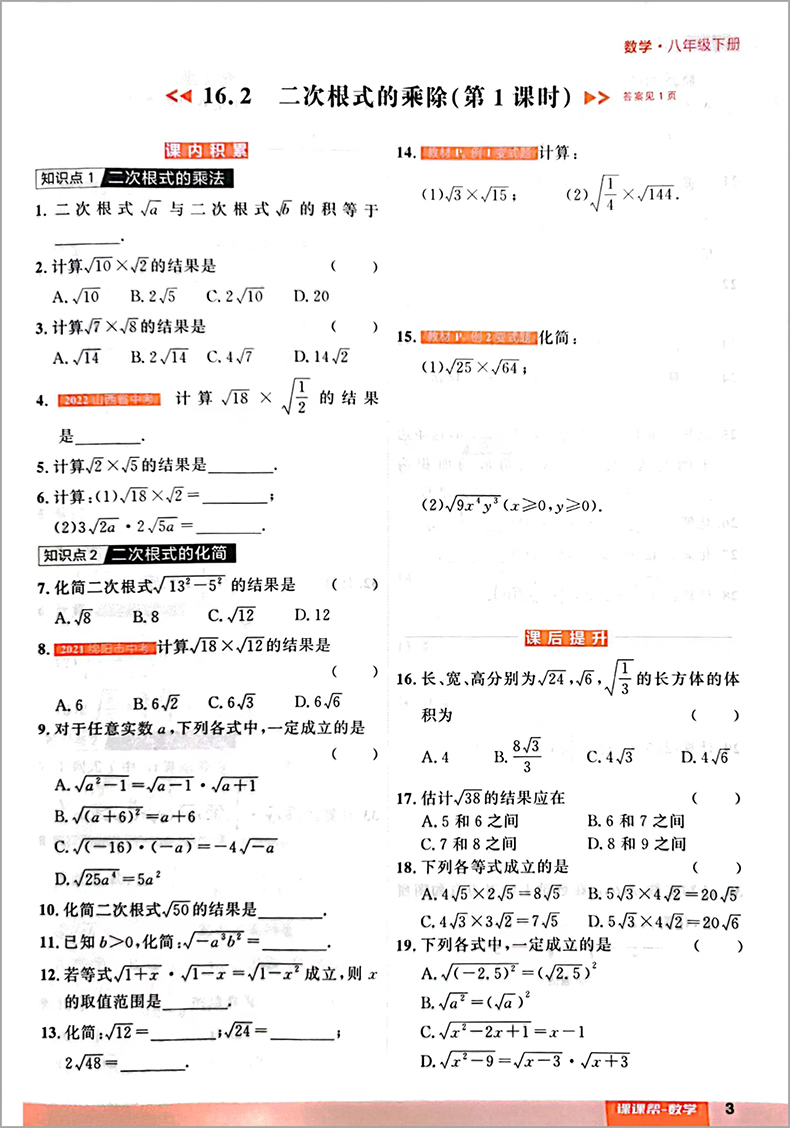 数学·八年级下册
16.2 二次根式的乘除(第1课时)
答案见1页
课内积累
知识点1 二次根式的乘法
1. 二次根式√a与二次根式√b的积等于
________.
2. 计算√10×√2的结果是 ( )
A. √10 B. 2√5 C. 2√10 D. 20
3. 计算√7×√8的结果是 ( )
A. √14 B. 2√14 C. 4√7 D. 14√2
4. 2022山西省中考 计算√18×√(1/2)的结果
是________.
5. 计算√2×√5的结果是________.
6. 计算:(1)√18×√2=________;
(2)3√2a·2√5a=________.
知识点2 二次根式的化简
7. 化简二次根式√(13²-5²)的结果是 ( )
A. √8 B. 8 C. √12 D. 12
8. 2021绵阳市中考 计算√18×√12的结果是
( )
A. 6 B. 6√2 C. 6√3 D. 6√6
9. 对于任意实数a,下列各式中,一定成立的是
( )
A. √(a²-1)=√(a-1)·√(a+1)
B. √((a+6)²)=a+6
C. √((-16)·(-a))=-4√(-a)
D. √(25a⁴)=5a²
10. 化简二次根式√50的结果是________.
11. 已知b>0,化简:√(-a³b²)=________.
12. 若等式√(1+x)·√(1-x)=√(1-x²)成立,则x
的取值范围是________.
13. 化简:√12=________;√24=________;
2√48=________.
14. 教材P 例1变式题 计算:
(1)√3×√15; (2)√(1/4)×√144.
15. 教材P 例2变式题 化简:
(1)√25×√64;
(2)√(9x⁴y³)(x≥0,y≥0).
课后提升
16. 长、宽、高分别为√24,√6,√(1/3)的长方体的体
积为 ( )
A. 4 B. 8√3/3 C. 4√3 D. 4√6
17. 估计√38的结果应在 ( )
A. 5和6之间 B. 6和7之间
C. 7和8之间 D. 8和9之间
18. 下列各等式成立的是 ( )
A. 4√5×2√5=8√5 B. 5√3×4√2=20√5
C. 4√3×3√2=7√5 D. 5√3×4√2=20√6
19. 下列各式中,一定成立的是 ( )
A. √((-2.5)²)=(√2.5)²
B. √(a²)=(√a)²
C. √(x²-2x+1)=x-1
D. √(x²-9)=√(x-3)·√(x+3)
课课帮-数学 3